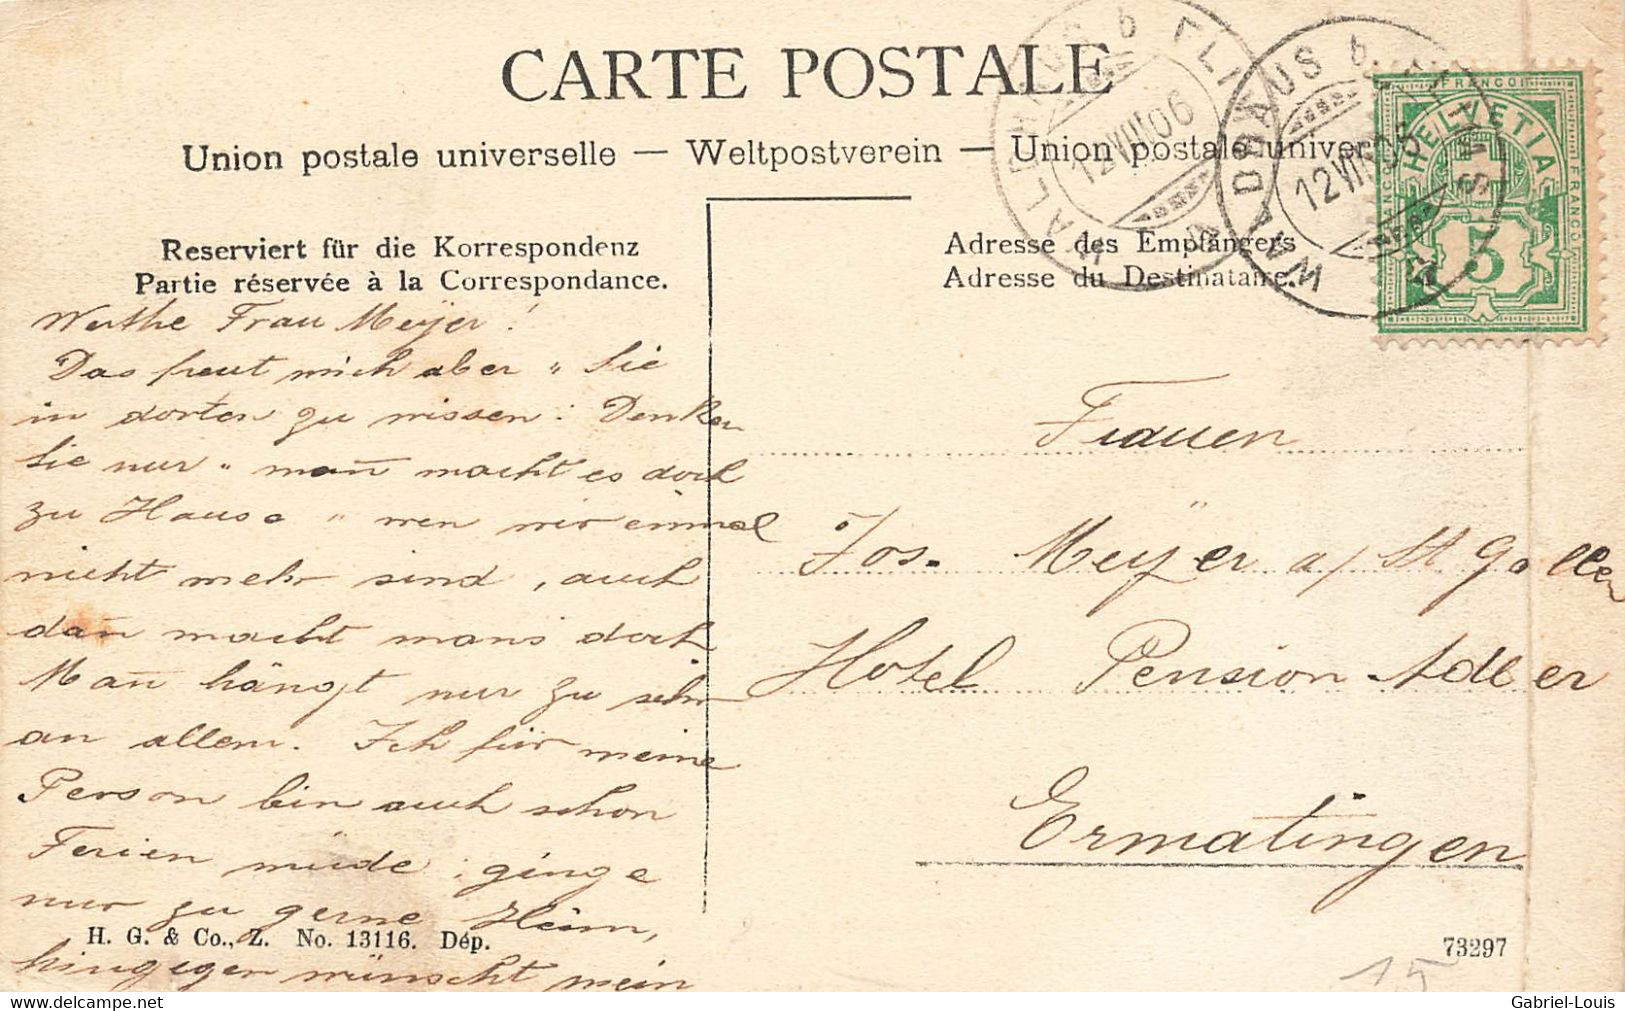 CARTE POSTALE
Union postale universelle — Weltpostverein — Union postale univer
Reserviert für die Korrespondenz
Partie réservée à la Correspondance.
Adresse des Empfängers
Adresse du Destinataire.
WALDHAUS b. FLIMS
12 VII 06
WALDHAUS b. FLIMS
12 VII 06
FRANCO
HELVETIA
FRANCO
FRANCO
5
Werthe Frau Meÿer!
Das freut mich aber " Sie
in dorten zu wissen: Denken
Sie nur " man̄ macht es doch
zu Hause " wen wir einmal
nicht mehr sind, auch
dan̄ macht mans doch
Man̄ hängt nur zu sehr
an allem. Ich für meine
Person bin auch schon
Ferien müde; ginge
nur zu gerne Heim,
hingegen wünscht mein
Frauen
Jos. Meÿer a/ St Gallen
Hotel Pension Adler
Ermatingen
H. G. & Co., Z. No. 13116. Dép.
73297
15
delcampe.net
Gabriel-Louis